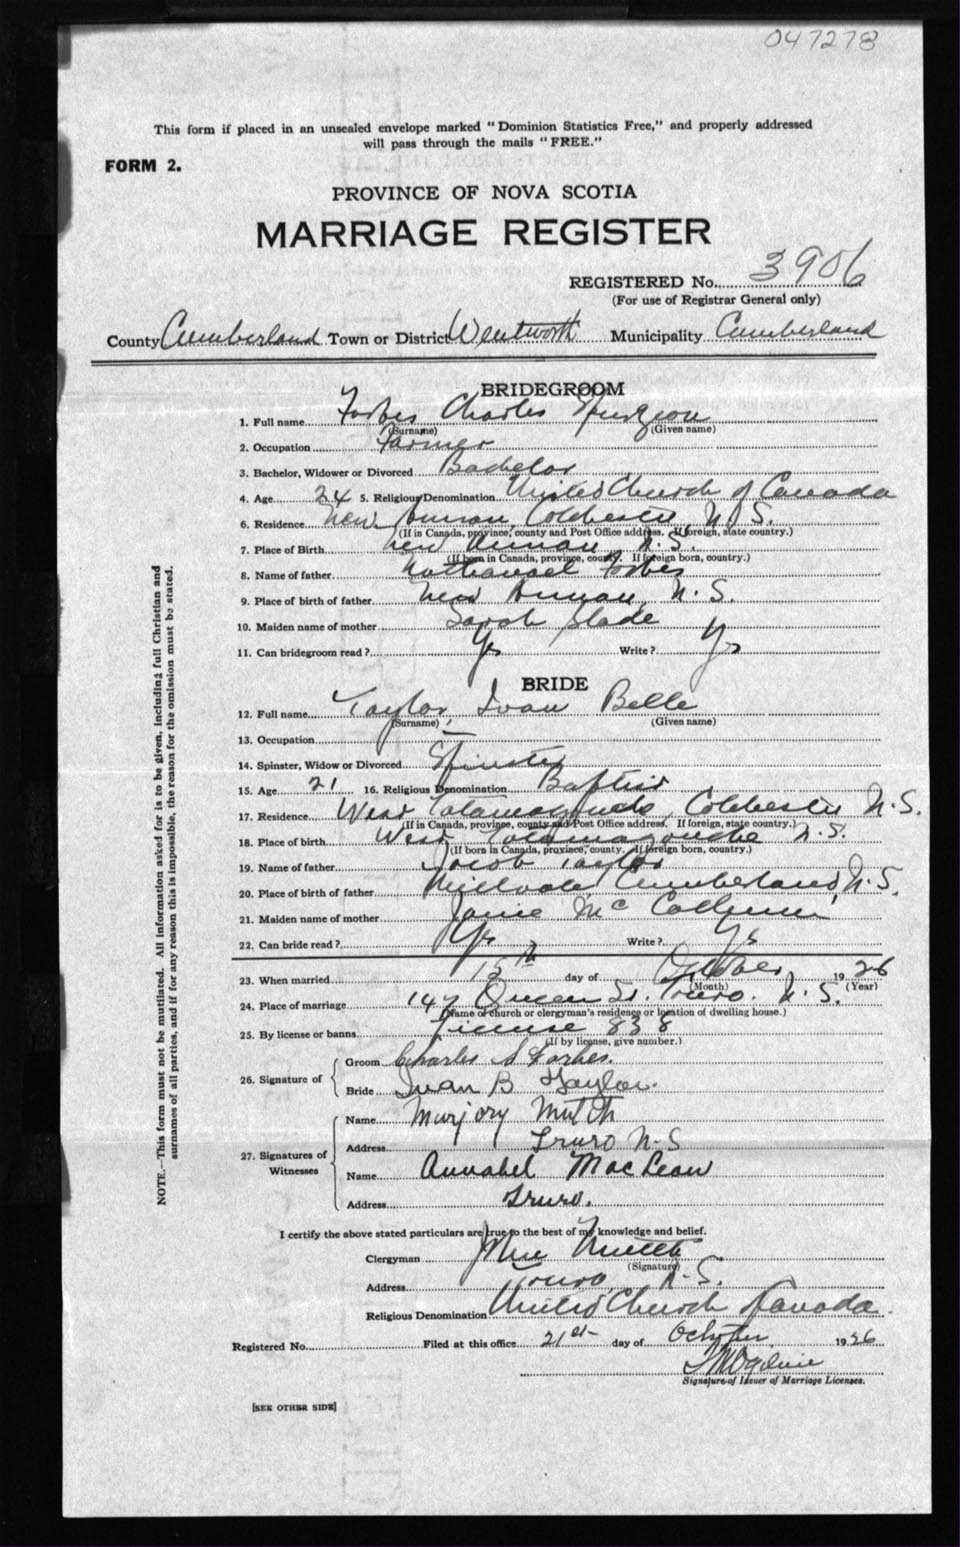 047278
This form if placed in an unsealed envelope marked "Dominion Statistics Free," and properly addressed
will pass through the mails "FREE."
FORM 2.
PROVINCE OF NOVA SCOTIA
MARRIAGE REGISTER
REGISTERED No. 3906
(For use of Registrar General only)
County Cumberland Town or District Wentworth Municipality Cumberland
BRIDEGROOM
1. Full name Forbes Charles Spurgeon
(Surname) (Given name)
2. Occupation Farmer
3. Bachelor, Widower or Divorced Bachelor
4. Age 24 5. Religious Denomination United Church of Canada
6. Residence New Annan, Colchester, N.S.
(If in Canada, province, county and Post Office address. If foreign, state country.)
7. Place of Birth New Annan, N.S.
(If born in Canada, province, county. If foreign born, country.)
8. Name of father Nathanael Forbes
9. Place of birth of father New Annan, N.S.
10. Maiden name of mother Sarah Slade
11. Can bridegroom read? Yes Write? Yes
BRIDE
12. Full name Taylor, Ivan Belle
(Surname) (Given name)
13. Occupation —
14. Spinster, Widow or Divorced Spinster
15. Age 21 16. Religious Denomination Baptist
17. Residence West Tatamagouche, Colchester N.S.
(If in Canada, province, county and Post Office address. If foreign, state country.)
18. Place of birth West Tatamagouche N.S.
(If born in Canada, province, county. If foreign born, country.)
19. Name of father Jacob Taylor
20. Place of birth of father Millvale Cumberland, N.S.
21. Maiden name of mother Janie Mc
22. Can bride read? Yes Write? Yes
23. When married 15th day of October 1926
(Month) (Year)
24. Place of marriage 147 Queen St. Truro. N.S.
(Name of church or clergyman's residence or location of dwelling house.)
25. By license or banns License 838
(If by license, give number.)
26. Signature of
Groom Charles S Forbes
Bride Ivan B Taylor.
27. Signatures of Witnesses
Name Marjory Mutch
Address Truro N.S
Name Annabel MacLean
Address Truro.
I certify the above stated particulars are true to the best of my knowledge and belief.
Clergyman John Mutch
(Signature)
Address Truro, N.S.
Religious Denomination United Church Canada.
Registered No. Filed at this office 21st day of October 1926
Ogilvie
Signature of Issuer of Marriage Licenses.
[SEE OTHER SIDE]
NOTE.—This form must not be mutilated. All information asked for is to be given, including full Christian and
surnames of all parties, and if for any reason this is impossible, the reason for the omission must be stated.